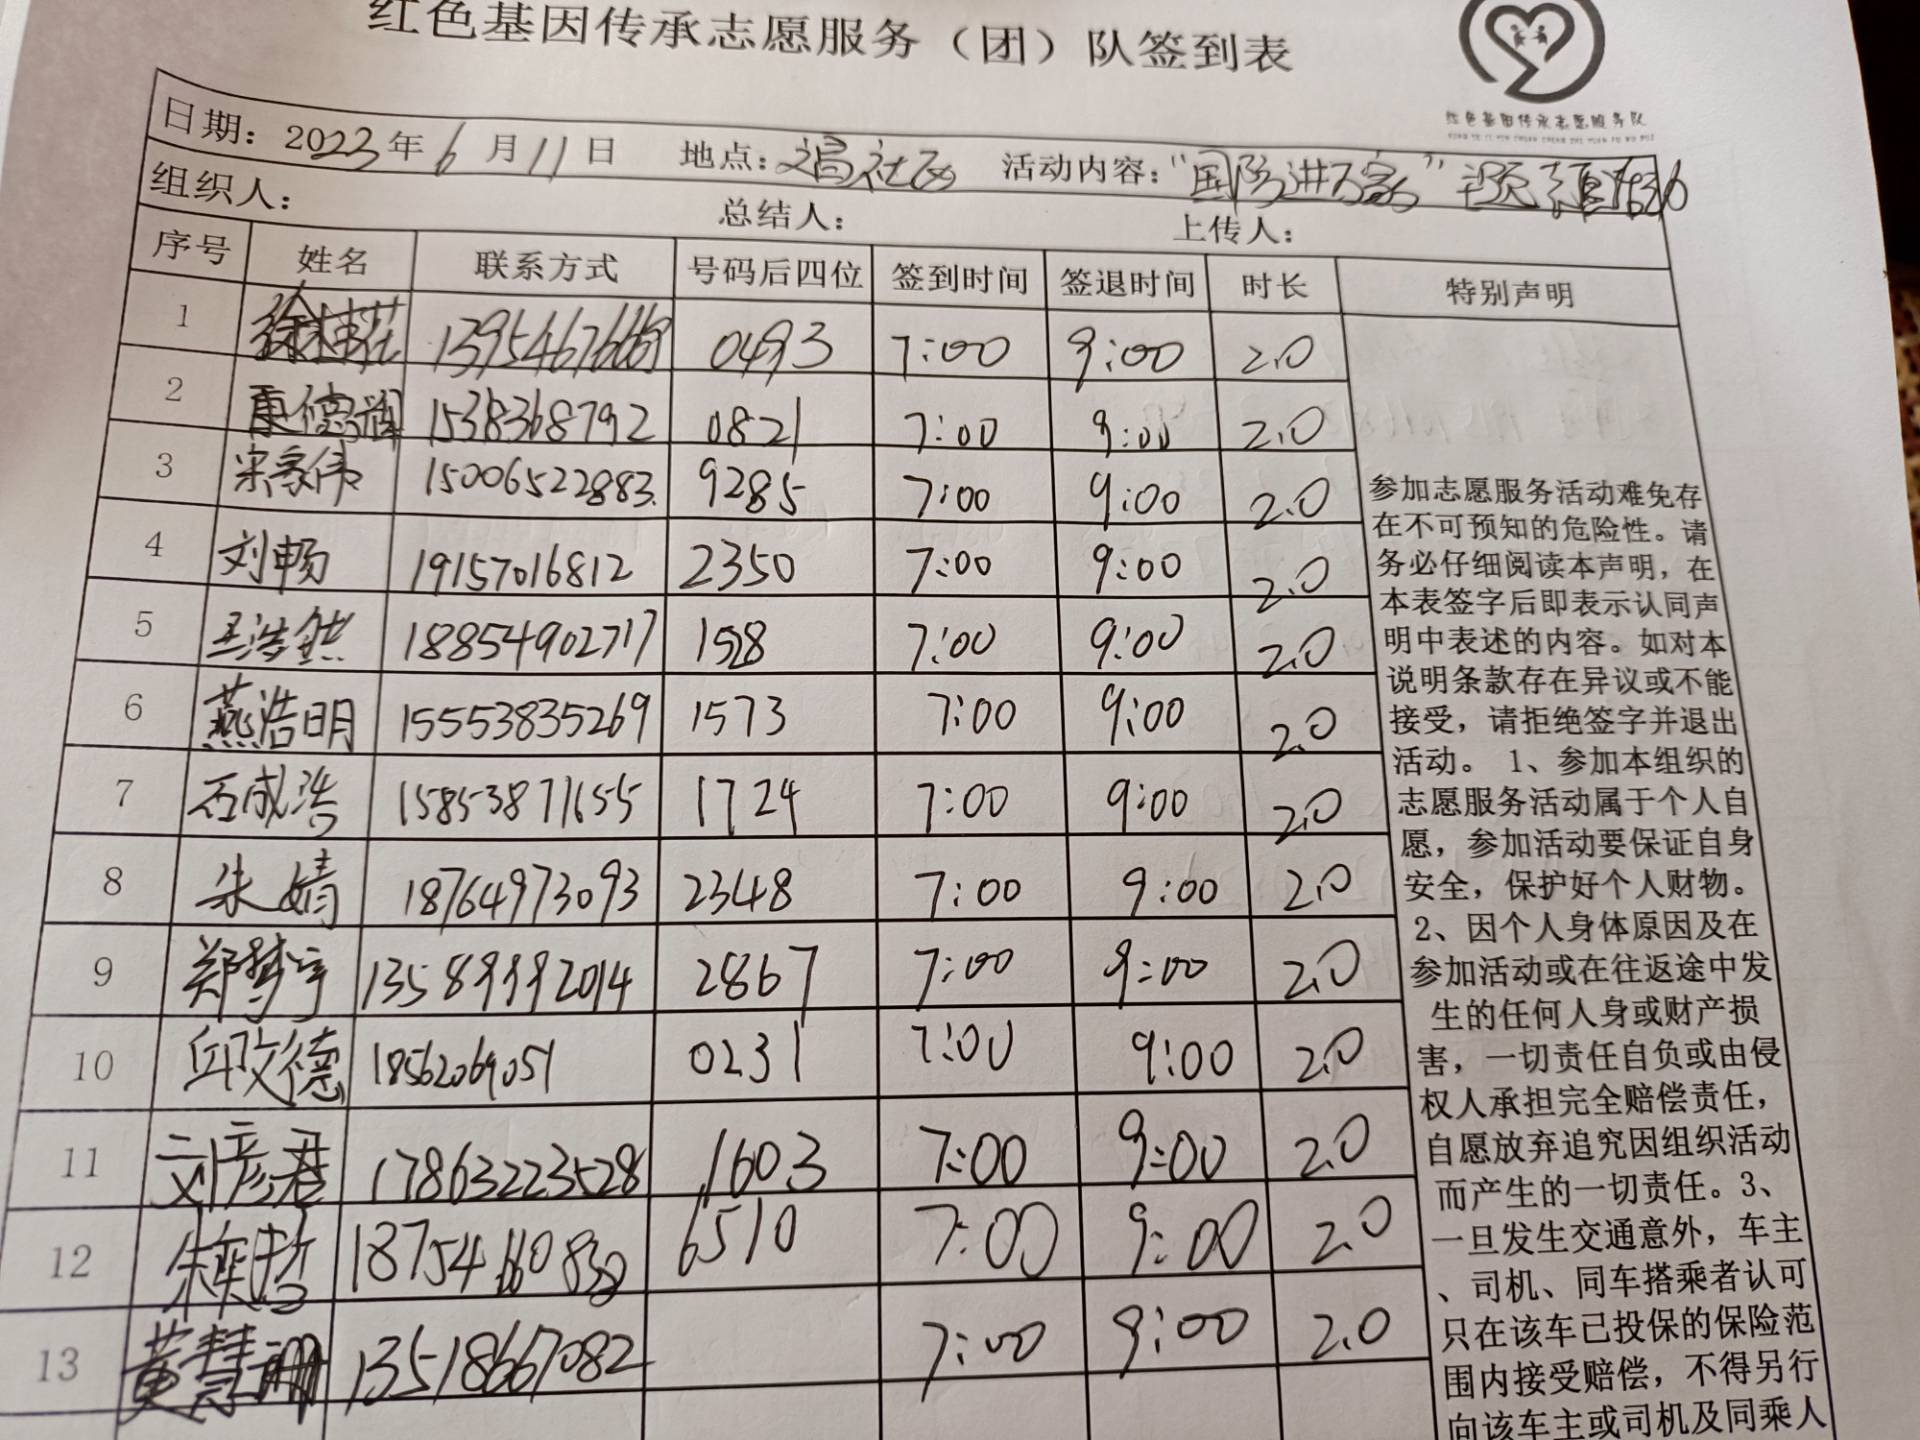 红色基因传承志愿服务（团）队签到表
红色基因传承志愿服务队
日期：2023年6月11日 地点：社区 活动内容：“国防进万家”主题
组织人： 总结人： 上传人：
序号 姓名 联系方式 号码后四位 签到时间 签退时间 时长 特别声明
1 0493 7:00 9:00 2.0
2 康德润 1538368792 0821 7:00 9:00 2.0
3 宋家伟 15006522883 9285 7:00 9:00 2.0
4 刘畅 19157016812 2350 7:00 9:00 2.0
5 王浩然 18854902717 1528 7:00 9:00 2.0
6 燕浩明 15553835269 1573 7:00 9:00 2.0
7 石成浩 15853871655 1724 7:00 9:00 2.0
8 朱婧 18764973093 2348 7:00 9:00 2.0
9 郑梦宇 13589992014 2867 7:00 9:00 2.0
10 邱政德 18562069051 0231 7:00 9:00 2.0
11 刘彦君 17863223528 1603 7:00 9:00 2.0
12 朱奕哲 6510 7:00 9:00 2.0
13 黄慧珊 13518667082 7:00 9:00 2.0
参加志愿服务活动难免存
在不可预知的危险性。请
务必仔细阅读本声明，在
本表签字后即表示认同声
明中表述的内容。如对本
说明条款存在异议或不能
接受，请拒绝签字并退出
活动。 1、参加本组织的
志愿服务活动属于个人自
愿，参加活动要保证自身
安全，保护好个人财物。
2、因个人身体原因及在
参加活动或在往返途中发
生的任何人身或财产损
害，一切责任自负或由侵
权人承担完全赔偿责任，
自愿放弃追究因组织活动
而产生的一切责任。3、
一旦发生交通意外，车主
、司机、同车搭乘者认可
只在该车已投保的保险范
围内接受赔偿，不得另行
向该车主或司机及同乘人